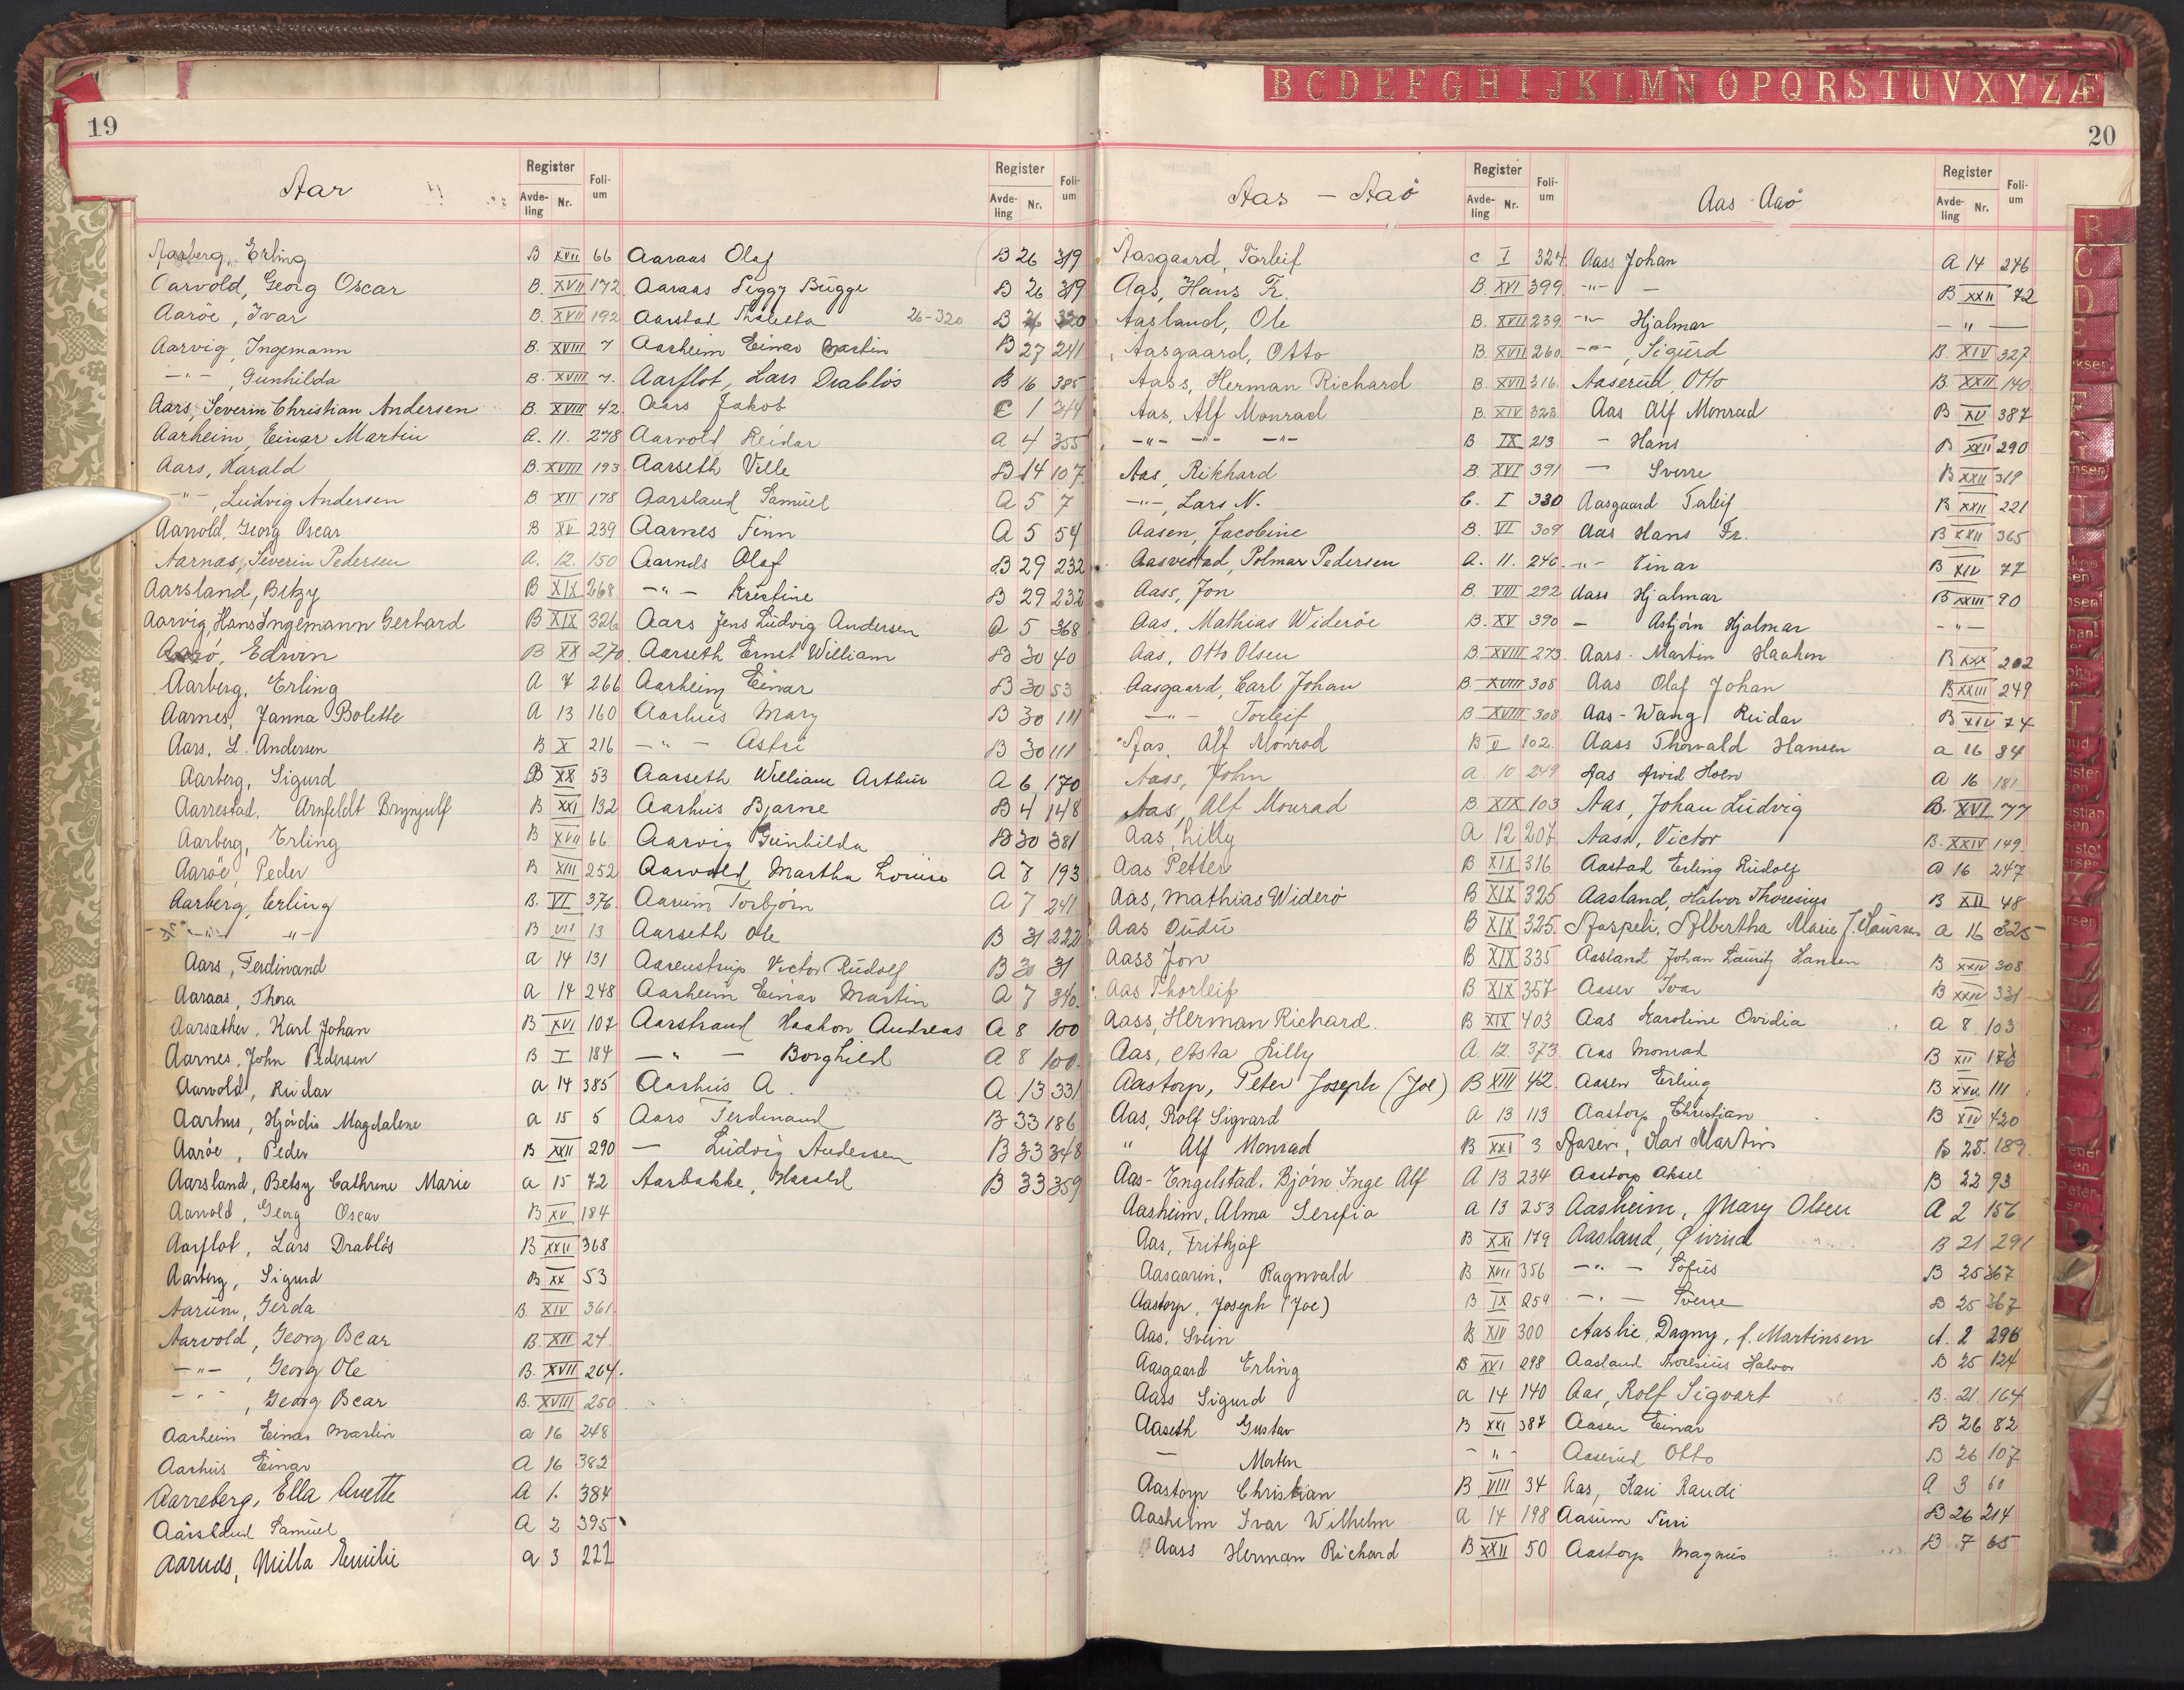 B C D E F G H I J K L M N O P Q R S T U V X Y Z Æ
19
Aar
Register
Avdeling Nr.
Folium
Aarberg, Erling B XVII 66
Aarvold, Georg Oscar B. XVII 172
Aaröe, Ivar B. XVII 192
Aarvig, Ingemann B. XVIII 7
—"—, Gunhilda B. XVIII 7.
Aars, Severin Christian Andersen B. XVIII 42.
Aarheim, Einar Martin A. 11. 278
Aars, Harald B. XVIII 193
—"—, Ludvig Andersen B XII 178
Aarvold, Georg Oscar B XV 239
Aarnas, Severin Pedersen A. 12. 150
Aarsland, Betzy B XIX 268
Aarvig, Hans Ingemann Gerhard B XIX 326
Aarö, Edwin B XX 270
Aarberg, Erling A 7 266
Aarnes, Janna Bolette A 13 160
Aars, L. Andersen B X 216
Aarberg, Sigurd B XX 53
Aarrestad, Arnfeldt Brynjulf B XXI 132
Aarberg, Erling B XVII 66
Aaröe, Peder B XIII 252
Aarberg, Erling B. VI 376.
—"— —"— B VII 13
Aars, Ferdinand a 14 131
Aaraas, Thora a 14 248
Aarsæther, Karl Johan B XVI 107
Aarnes, John Pedersen B I 184
Aarvold, Reidar a 14 385
Aarhus, Hjördis Magdalene a 15 5
Aaröe, Peder B XXII 290
Aarsland, Betsy Cathrine Marie a 15 72
Aarvold, Georg Oscar B XV 184
Aarflot, Lars Drabløs B XXII 368
Aarberg, Sigurd B XX 53
Aarum, Gerda B. XIV 361.
Aarvold, Georg Oscar B. XII 24.
—"—, Georg Ole B. XVII 264.
—"—, Georg Oscar B. XVIII 250
Aarheim Einar Martin a 16 248
Aarhus Einar A 16 382
Aarreberg, Ella Anette A 1. 384
Aarsland Samuel A 2 395
Aarnes, Milla Emilie a 3 222
Register
Avdeling Nr.
Folium
Aaraas Olaf B 26 319
Aaraas Peggy Bugge B 26 319
Aarstad Thaletta 26-320 B 26 320
Aarheim Einar Martin B 27 241
Aarflot, Lars Drabløs B 16 385
Aars Jakob C 1 344
Aarvold Reidar a 4 355
Aarseth Ville B 14 107
Aarsland Samuel A 5 7
Aarnes Finn A 5 54
Aarnes Olaf B 29 232
—"— Kristine B 29 232
Aars Jens Ludvig Andersen A 5 368
Aarseth Ernst William B 30 40
Aarheim Einar B 30 53
Aarhus Mary B 30 111
—"— Astri B 30 111
Aarseth William Arthur A 6 170
Aarhus Bjarne B 4 148
Aarvig Gunhilda B 30 381
Aarvold Martha Louise A 7 193
Aarum Torbjørn A 7 241
Aarseth Ole B 31 222
Aarenstrup Victor Rudolf B 30 31
Aarheim Einar Martin A 7 340.
Aarstrand Haakon Andreas A 8 100
—"— Borghild A 8 100.
Aarhus A. A 13 331
Aars Ferdinand B 33 186
— Ludvig Andersen B 33 348
Aarbakke, Harald B 33 359
20
Aas – Aaö
Register
Avdeling Nr.
Folium
Aasgaard, Torleif C I 324.
Aas, Hans Fr. B. XVI 399
Aasland, Ole B. XVII 239
Aasgaard, Otto B. XVII 260
Aass, Herman Richard B. XVII 316.
Aas, Alf Monrad B. XIV 323
—"— —"— —"— B IX 213
Aas, Rikhard B. XVI 391
—"—, Lars N. C. I 330
Aasen, Jacobine B. VI 309
Aasvestad, Polmar Pedersen A. 11. 246.
Aass, Jon B. VIII 292
Aas, Mathias Wideröe B. XV 390
Aas, Otto Olsen B. XVIII 273
Aasgaard, Carl Johan B. XVIII 308
—"— Torleif B. XVIII 308
Aas, Alf Monrad B V 102.
Aass, John a 10 249
Aas, Alf Monrad B. XIX 103
Aas, Lilly A 12 207
Aas Petter B XIX 316
Aas, Mathias Widerö B XIX 325
Aas Dudu B XIX 325
Aass Jon B XIX 335
Aas Thorleif B XIX 357
Aass, Herman Richard. B XIX 403
Aas, Asta Lilly A. 12. 373.
Aastorp, Peter Joseph (Joe) B XIII 42.
Aas, Rolf Sigvard a 13 113
" Alf Monrad B XXI 3
Aas-Engelstad, Bjørn Inge Alf A 13 234
Aasheim, Alma Serefia a 13 253
Aas, Frithjof B XXI 179
Aasaaren, Ragnvald B XVII 356
Aastorp, Joseph (Joe) B IX 259
Aas, Svein B XIV 300
Aasgaard Erling B XXI 298
Aass Sigurd a 14 140
Aaseth Gustav B XXI 387
— Morten — " —
Aastorp Christian B VIII 34
Aasheim Ivar Wilhelm a 14 198
Aass Herman Richard B XXII 50
Aas Aaö
Register
Avdeling Nr.
Folium
Aass Johan A 14 246
—"— — B XXII 72
—"— Hjalmar — " —
—"—, Sigurd B. XIV 327
Aaserud, Otto B. XXII 140
Aas Alf Monrad B XV 387
— Hans B XXII 290
— Sverre B XXII 319
Aasgaard Torleif B XXII 221
Aas Hans Fr. B XXII 365
—"— Einar B XIV 77
Aass Hjalmar B XXIII 90
— Asbjørn Hjalmar —"—
Aass Martin Haakon B XXX 202
Aas Olaf Johan B XXIII 249
Aas-Wang Reidar B XIV 74
Aass Thorvald Hansen a 16 84
Aas Arvid Holen A 16 181
Aas, Johan Ludvig B. XVI 77
Aass, Victor B. XXIV 149.
Aastad Erling Rudolf a 16 247
Aasland, Halvor Thoresius B XII 48
Aaspeli, Albertha Marie f. Laurssen a 16 325
Aasland Johan Lauritz Hansen B XXIV 308
Aasen Ivar B XXIV 331
Aas Karoline Ovidia A 8 103
Aas Monrad B XII 176
Aasen Erling B XXV. 111
Aastorp Christian B XIV 420
Aasen, Kar Martin B 25. 189.
Aastorp Aksel B 22 93
Aasheim, Mary Olsen A 2 156
Aasland, Øivind B 21 291
—"— Sofus B 25 367
—"— Sverre B 25 367
Aaslie, Dagny, f. Martinsen A. 2 296
Aasland Thoresius Halvor B 25 124
Aas, Rolf Sigvart B. 21. 164
Aasen Einar B 26 82
Aaserud Otto B 26 107
Aas, Kari Randi A 3 60
Aasum Turi B 26 214
Aastorp Magnus B 7 65